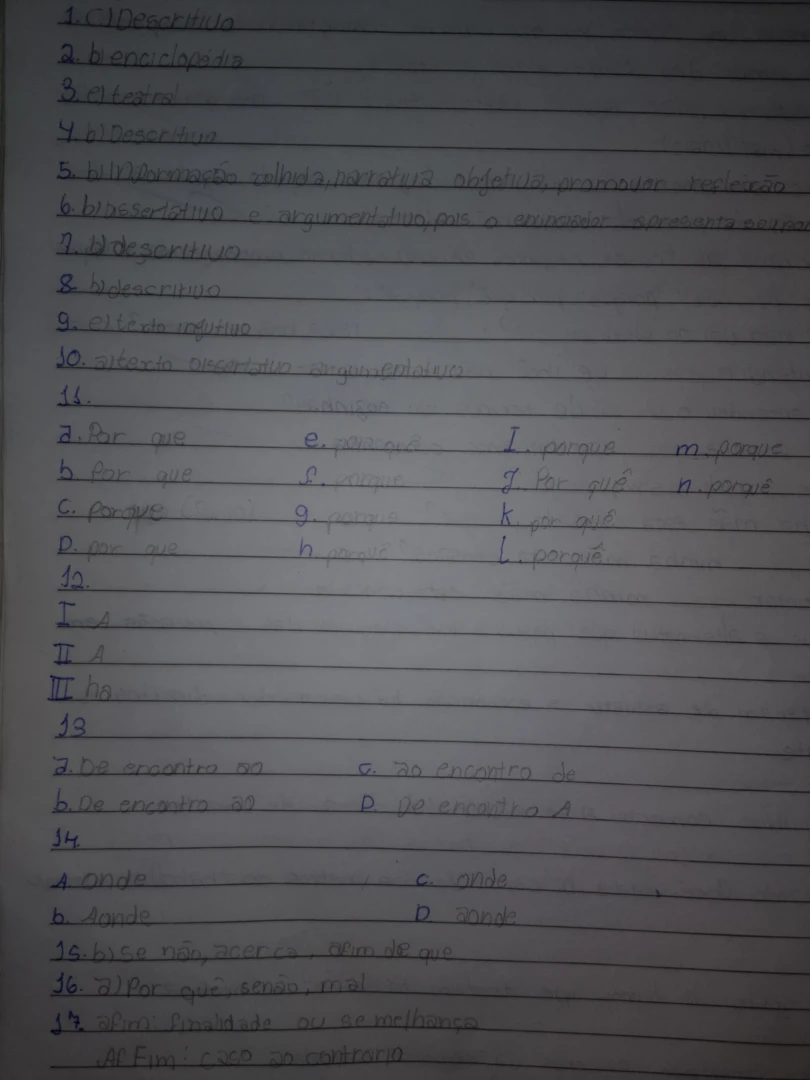 1. c) Descritivo
2. b) enciclopédia
3. e) teatral
4. b) Descritivo
5. b) Informação colhida, narrativa objetiva, promover refleição
6. b) assertativo e argumentativo, pois o enunciador apresenta seu
7. b) descritivo
8. b) descritivo
9. e) texto injutivo
10. a) texto Dissertativo-argumentativo
11.
a. Por que e. I. porque m. porque
b. Por que f. porque J. Por quê n. porquê
C. porque g. porque K. por quê
D. por que h. porquê L. porquê
12.
I A
II A
III ha
13
a. De encontro ao c. ao encontro de
b. De encontro ao D. De encontro A
14
A onde c. onde
b. Aonde D. aonde
15. b) se não, acerca, afim de que
16. a) Por quê, senão, mal
17. afim: finalidade ou semelhança
Af Fim: caso ao contrario